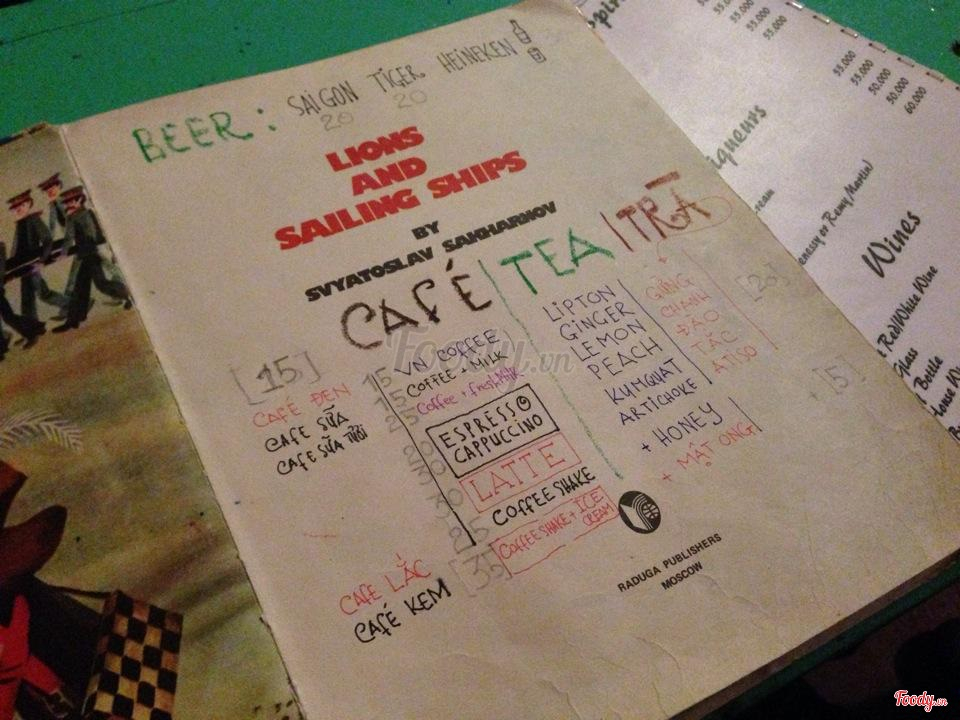 BEER: SAIGON TIGER HEINEKEN
20 20
LIONS
AND
SAILING SHIPS
BY
SVYATOSLAV SAKHARNOV
CAFÉ | TEA | TRÀ
[15]
CAFÉ ĐEN
CAFE SỮA
CAFE SỮA TƯƠI
CAFE LẮC
CAFÉ KEM
15 VN COFFEE
COFFEE + MILK
Coffee + fresh Milk
ESPRESSO
CAPPUCCINO
LATTE
COFFEE SHAKE
[35]
COFFEE SHAKE + ICE
CREAM
LIPTON
GINGER
LEMON
PEACH
KUMQUAT
ARTICHOKE
+ HONEY
+ MẬT ONG
GỪNG
CHANH
ĐÀO
TẮC
ATISO
[20]
+ [5]
RADUGA PUBLISHERS
MOSCOW
55.000
55.000
55.000
55.000
50.000
50.000
60.000
iqueurs
ream
ennessy or Remy/Martin)
Wines
Red/White Wine
Glass
Bottle
House Wi
Foody.vn
Foody.vn